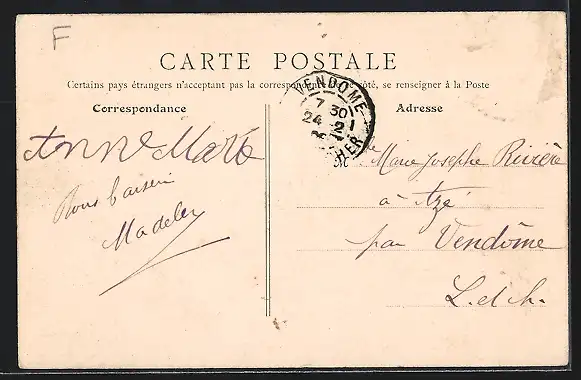 F
CARTE POSTALE
Certains pays étrangers n'acceptant pas la correspondance de ce côté, se renseigner à la Poste
Correspondance
Adresse
VENDOME
7 30
24 -2
CHER
Anne Marie
Bons baisers
Madelen
M Marie Josephe Rivière
à Azé
par Vendôme
L. et ch.